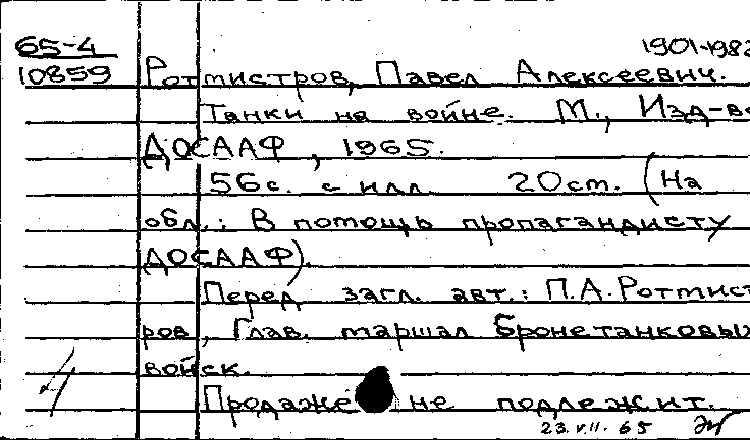 65-4
1901-1982
10859
Ротмистров, Павел Алексеевич.
Танки на войне. М., Изд-во
ДОСААФ, 1965.
56с. с илл. 20см. (На
обл.: В помощь пропагандисту
ДОСААФ).
Перед загл. авт.: П.А.Ротмист
ров, Глав. маршал бронетанковых
войск.
Продаже не подлежит.
23.VII.65